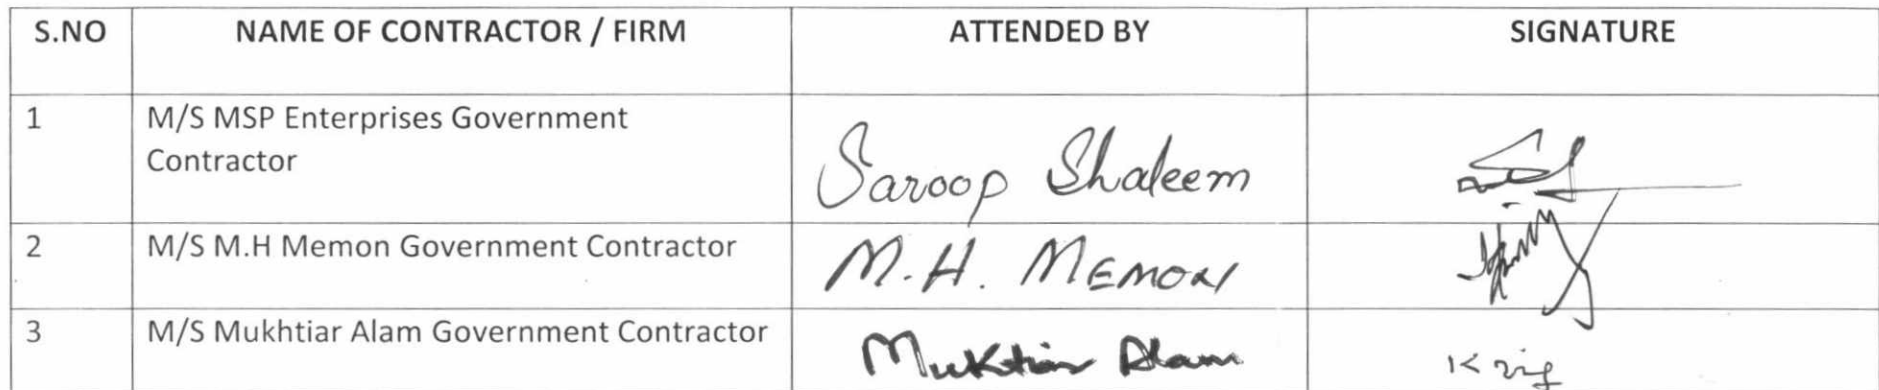 S.NO NAME OF CONTRACTOR / FIRM ATTENDED BY SIGNATURE
1 M/S MSP Enterprises Government
Contractor
Saroop Shaleem
2 M/S M.H Memon Government Contractor M.H. MEMON
3 M/S Mukhtiar Alam Government Contractor Mukhtiar Alam